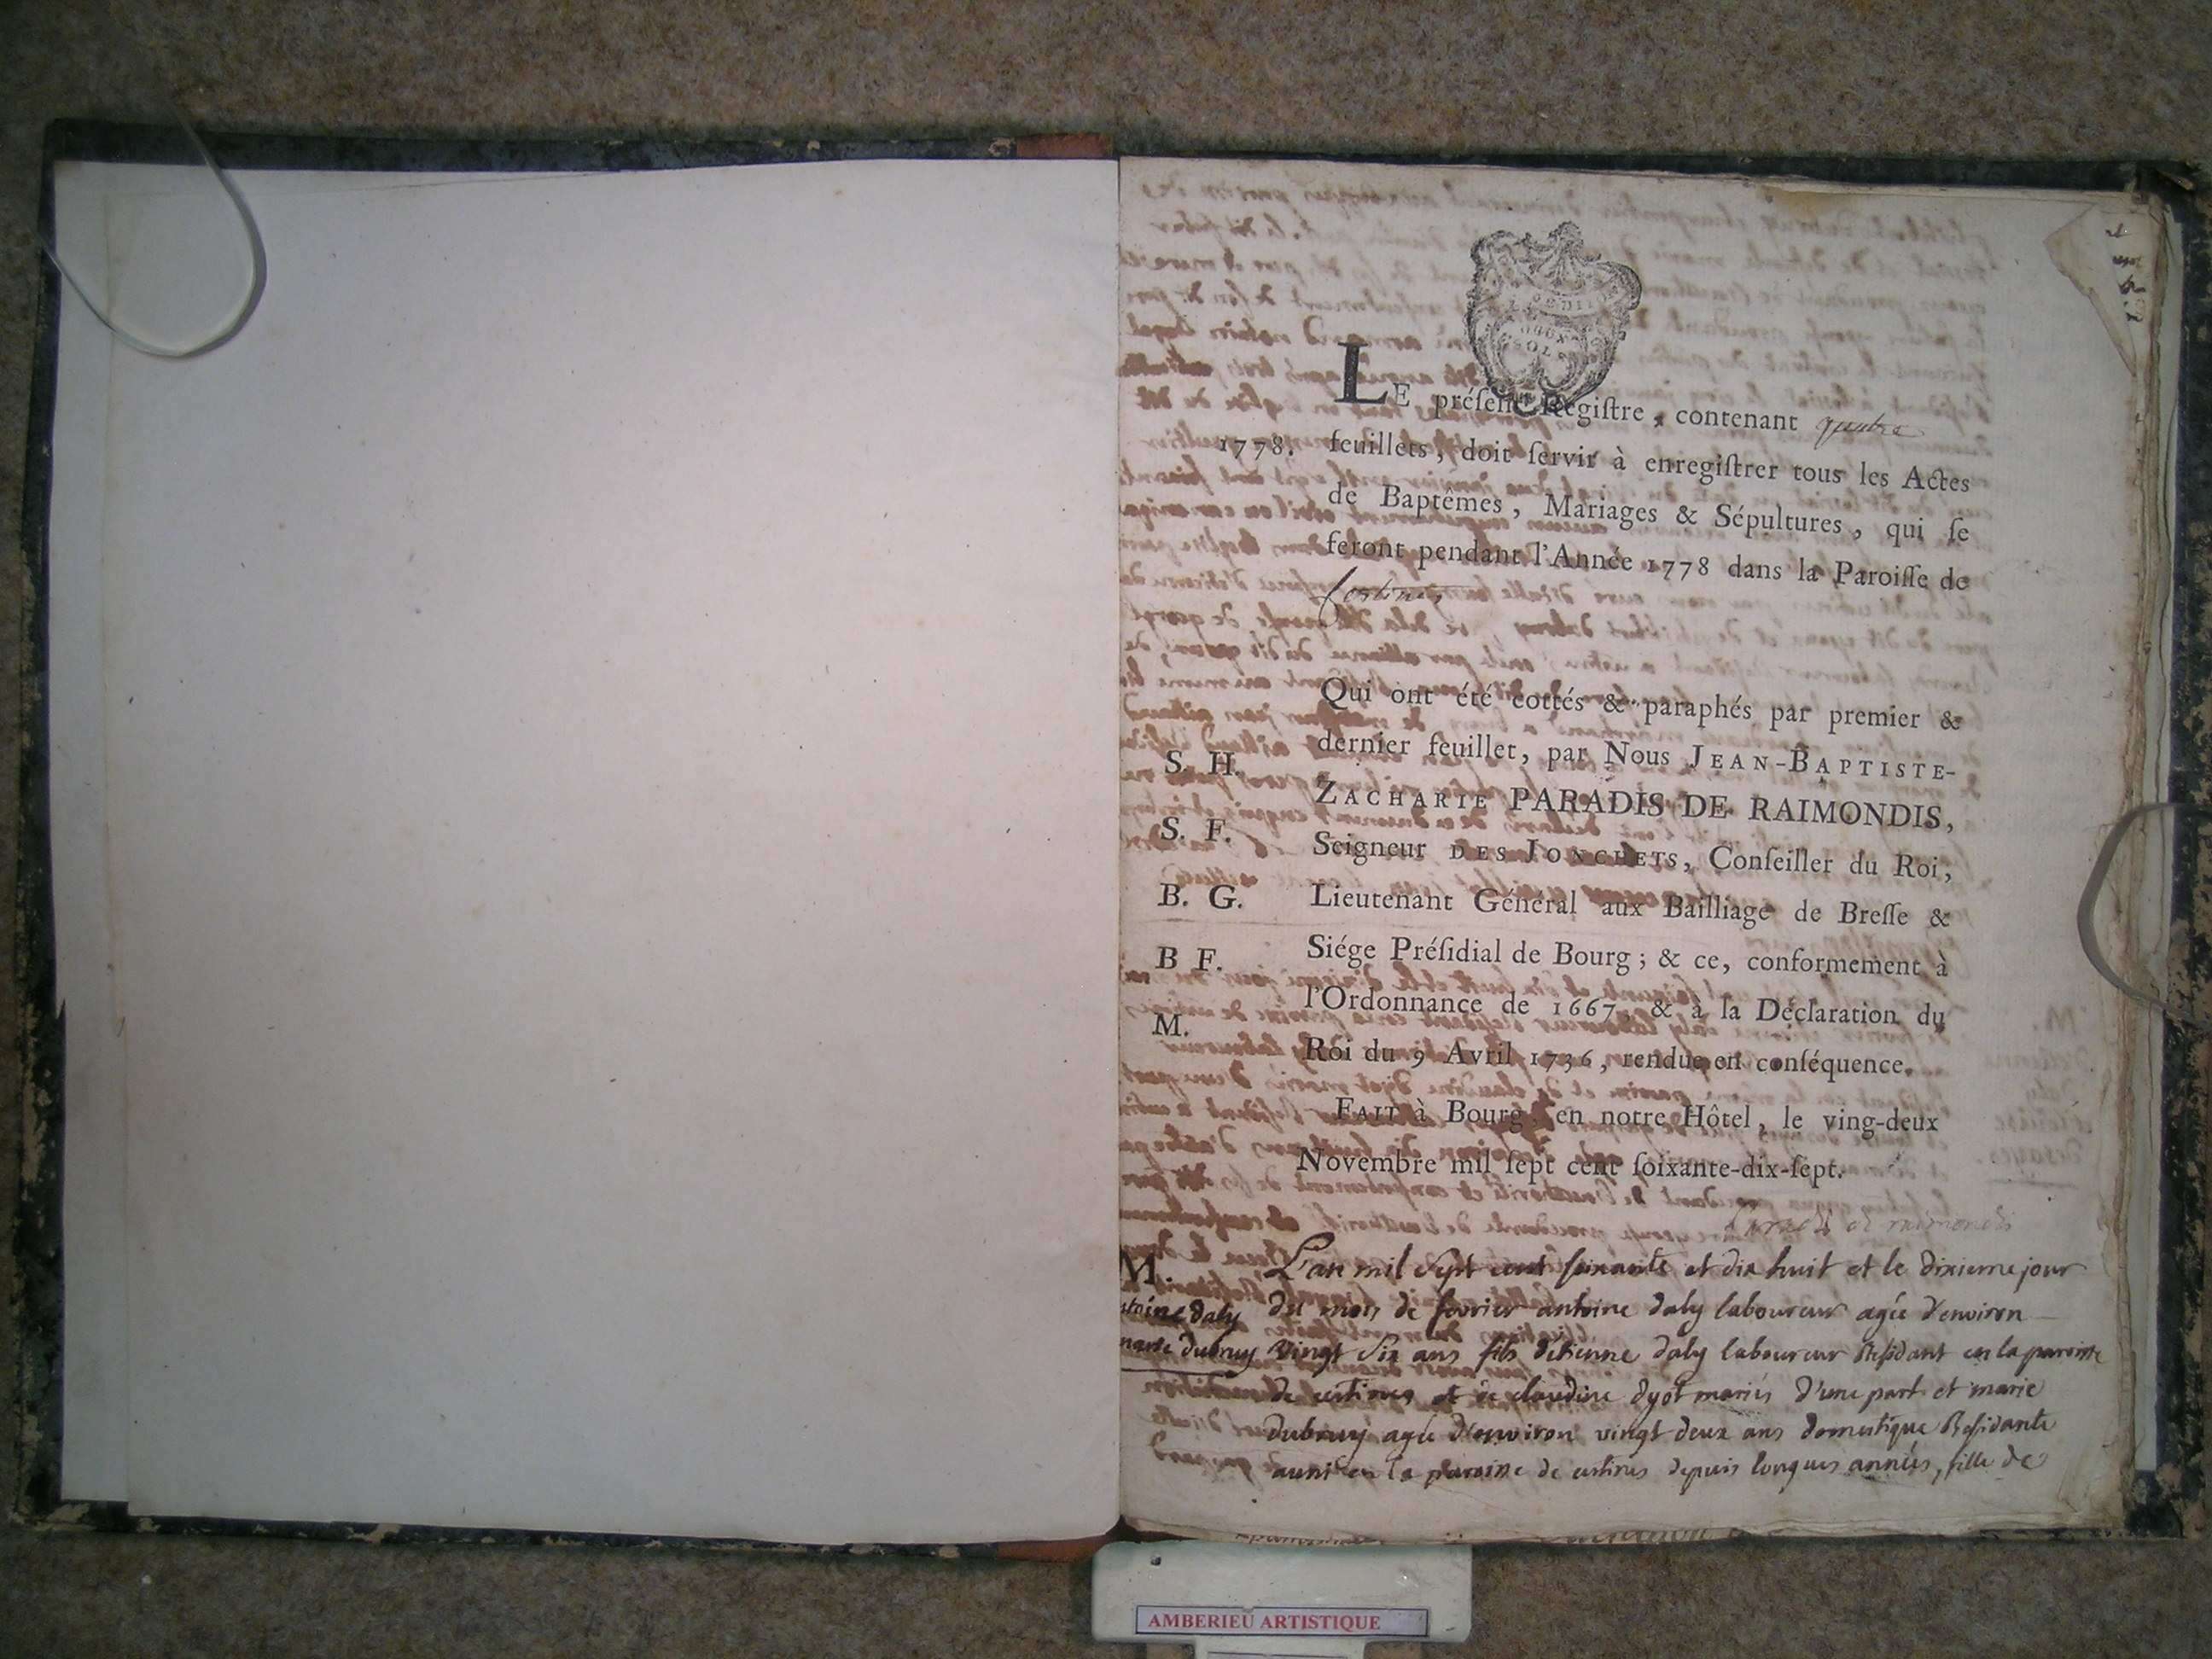 LE préſent Regiſtre, contenant quatre
1778. feuillets, doit ſervir à enregiſtrer tous les Actes
de Baptêmes, Mariages & Sépultures, qui ſe
feront pendant l'Année 1778 dans la Paroiſſe de
Certines
Qui ont été cottés & paraphés par premier &
dernier feuillet, par Nous JEAN-BAPTISTE-
S. H.
ZACHARIE PARADIS DE RAIMONDIS,
S. F.
Seigneur DES JONCHETS, Conſeiller du Roi,
B. G.
Lieutenant Général aux Bailliage de Breſſe &
B F.
Siége Préſidial de Bourg ; & ce, conformement à
l'Ordonnance de 1667, & à la Déclaration du
M.
Roi du 9 Avril 1736, rendue en conſéquence.
FAIT à Bourg, en notre Hôtel, le ving-deux
Novembre mil ſept cent ſoixante-dix-ſept.
Paradis de raimondis
M. L'an mil sept cent soixante et dix huit et le dixieme jour
ntoine daly du mois de fevrier antoine daly laboureur agée d'environ
marie dubruy vingt six ans fils d'etienne daly laboureur Residant en la paroisse
de certines et de claudine dyot mariés d'une part et marie
dubruy agée d'environ vingt deux ans domestique Residante
aussi en la paroisse de certines depuis longues années, fille de
AMBERIEU ARTISTIQUE